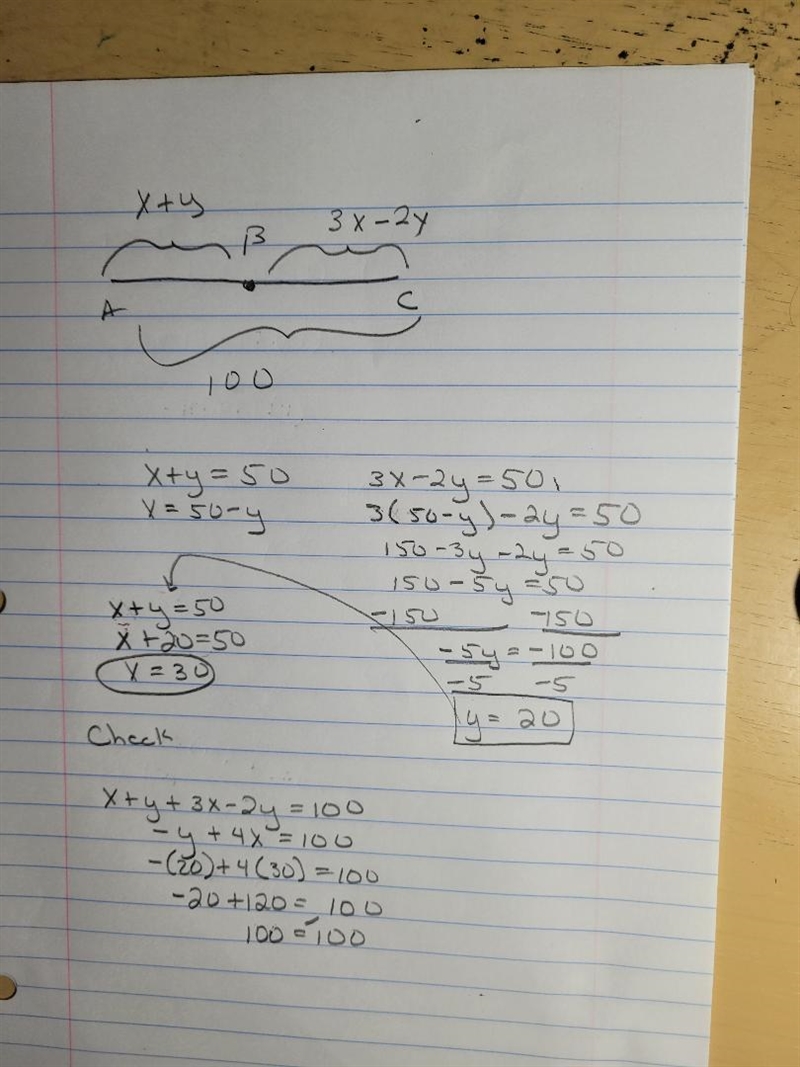 x+y
3x-2y
B
A
C
100
x+y=50
x=50-y
3x-2y=50
3(50-y)-2y=50
150-3y-2y=50
150-5y=50
-150 -150
-5y=-100
-5 -5
y=20
x+y=50
x+20=50
x=30
Check
x+y+3x-2y=100
-y+4x=100
-(20)+4(30)=100
-20+120=100
100=100